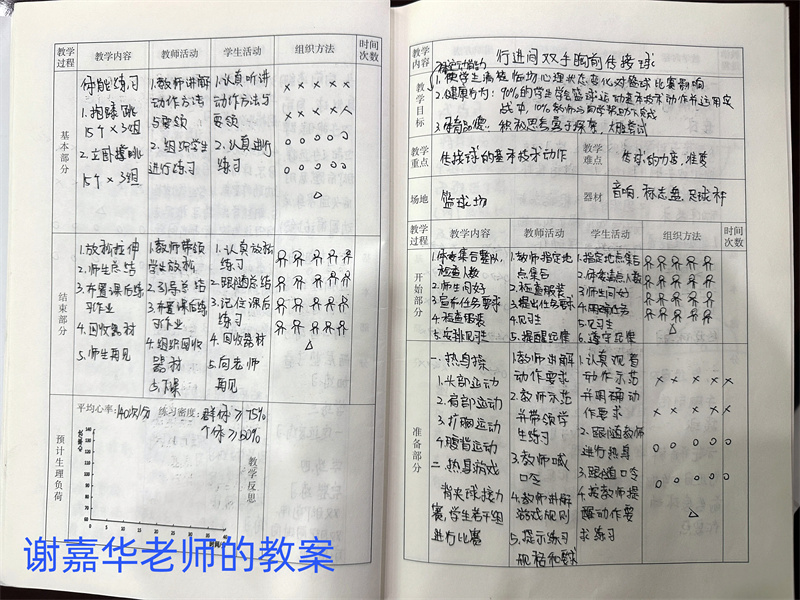 教学过程 教学内容 教师活动 学生活动 组织方法 时间次数
基本部分
体能练习
1.抱膝跳
15个×3组
2.立卧撑跳
15个×3组
1.教师讲解
动作方法
与要领
2.组织学生
进行练习
1.认真听讲
动作方法与
要领
2.认真进行
练习
结束部分
1.放松拉伸
2.师生总结
3.布置课后练
习作业
4.回收器材
5.师生再见
1.教师带领
学生放松
2.引导总结
3.布置课后练
习作业
4.组织回收
器材
5.下课
1.认真放松
练习
2.跟随总结
3.记住课后
练习
4.回收器材
5.向老师
再见
预计生理负荷
平均心率:140次/分 练习密度:群体≥75%
个体≥60%
教学反思
时间
教学内容 行进间双手胸前传接球
教学目标
2.健康行为:90%的学生学会篮球运动基本技术动作并运用实
战中,10%
3.体育品德:积极思考勇于探索,大胆尝试
教学重点 传接球的基本技术动作 教学难点 传球的力度,准度
场地 篮球场 器材 音响,标志盘,足球杆
教学过程 教学内容 教师活动 学生活动 组织方法 时间次数
开始部分
1.体委集合整队,
检查人数
2.师生问好
3.宣布任务要求
4.检查服装
5.安排见习生
1.教师指定地
点集合
2.检查服装
3.提出任务要求
4.见习生
5.提醒纪律
1.指定地点集合
2.体委清点人数
3.师生问好
4.明确任务
5.见习生
6.遵守纪律
准备部分
一.热身操
1.头部运动
2.肩部运动
3.扩胸运动
4.腰背运动
二.热身游戏
背夹球接力
赛,学生若干组
进行比赛
1.教师讲解
动作要求
2.教师示范
并带领学
生练习
3.教师喊
口令
4.教师讲解
游戏规则
5.提示练习
规格和要求
1.认真观看
动作示范
并明确动
作要求
2.跟随教师
进行热身
3.跟随口令
4.按教师提
醒动作要
求练习
谢嘉华老师的教案